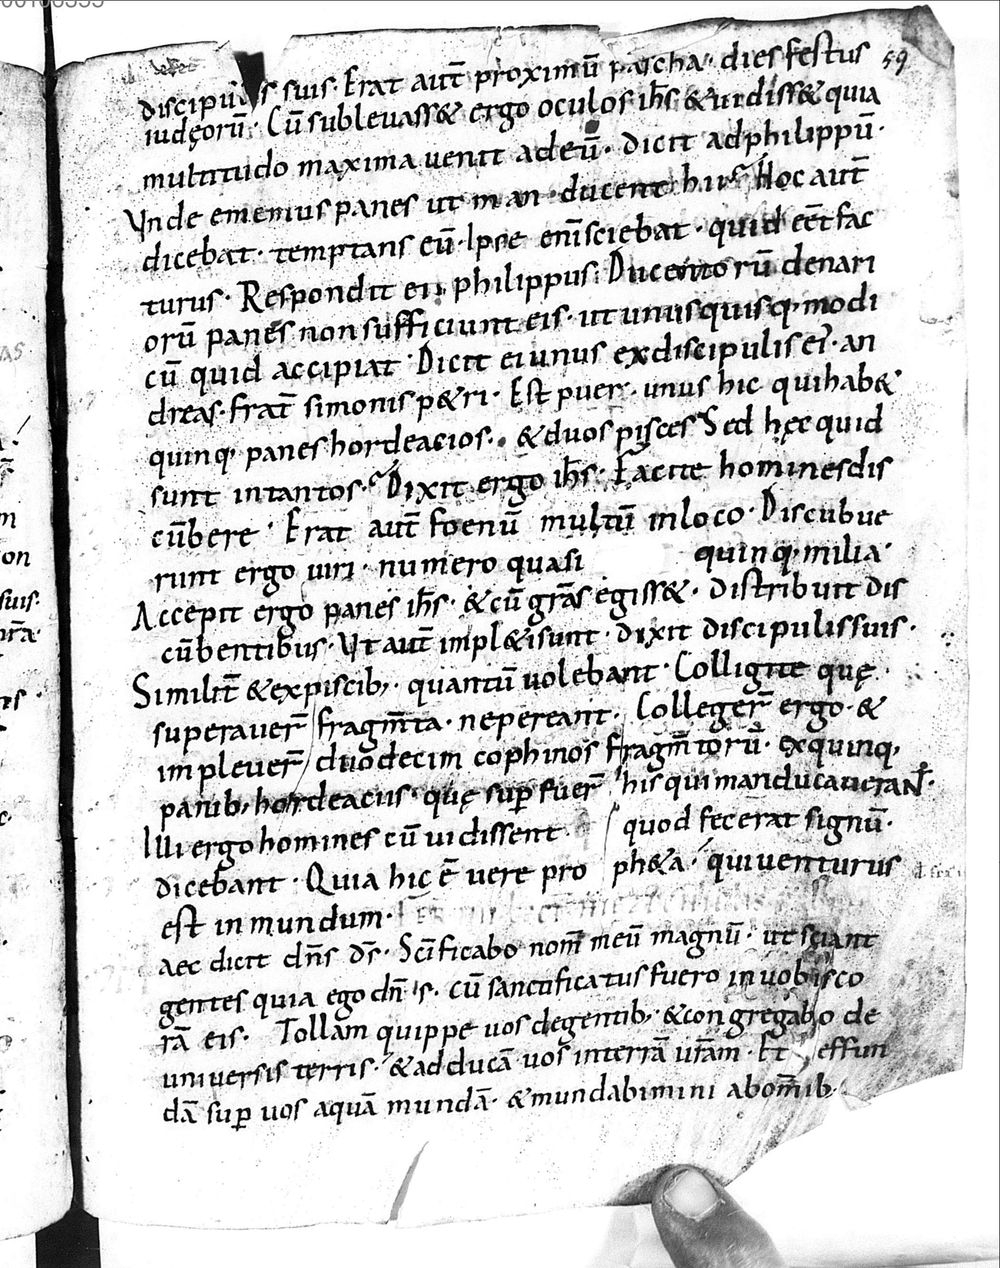 59
discipulis suis · Erat aut̄ proximū pascha · dies festus
iudęorū · Cū subleuass& ergo oculos ih̄s & uidiss& quia
multitudo maxima uenit ad eū · Dicit ad philippū ·
Vnde ememus panes ut man · ducent hii Hoc aut̄
dicebat · temptans eū · Ipse eni̅ sciebat · quid eēt fac
turus · Respondit ei philippus · Ducentorū denari
orū panes non sufficiunt eis · ut unusquisq · modi
cū quid accipiat · Dicit ei unus ex discipulis ei · an
dreas · frat̄ simonis p&ri · Est puer · unus hic qui hab&
quinq panes hordeacios · & duos pisces Sed hęc quid
sunt in tantos · Dixit ergo ih̄s · Facite homines dis
cūbere · Erat aut̄ foenū multū in loco · Discubue
runt ergo uiri · numero quasi quinq · milia ·
Accepit ergo panes ih̄s · & cū gr̄as egiss& · distribuit dis
cūbentibus · Vt aut̄ impl&i sunt · dixit discipulis suis ·
Similit̄ & ex piscib · quantū uolebant · Colligite quę
superauer̄ fragm̄ta · ne pereant · Colleger̄ ergo · &
impleuer̄ duodecim cophinos fragm̄torū · ex quinq
panib · hordeaciis · quę sup̄ fuer̄ his qui manducauerant ·
Illi ergo homines cū uidissent quod fecerat signū ·
dicebant · Quia hic ē uere pro ph&a · qui uenturus
est in mundum ·
aec dicit dn̄s ds̄ · Sc̄ificabo nom̄ meū magnū · ut sciant
gentes quia ego dn̄s · cū sanctificatus fuero in uobis co
rā eis · Tollam quippe uos de gentib · & congregabo de
uniuersis terris · & adducā uos in terrā ur̄am · Et effun
dā sup̄ uos aquā mundā · & mundabimini ab om̄ib